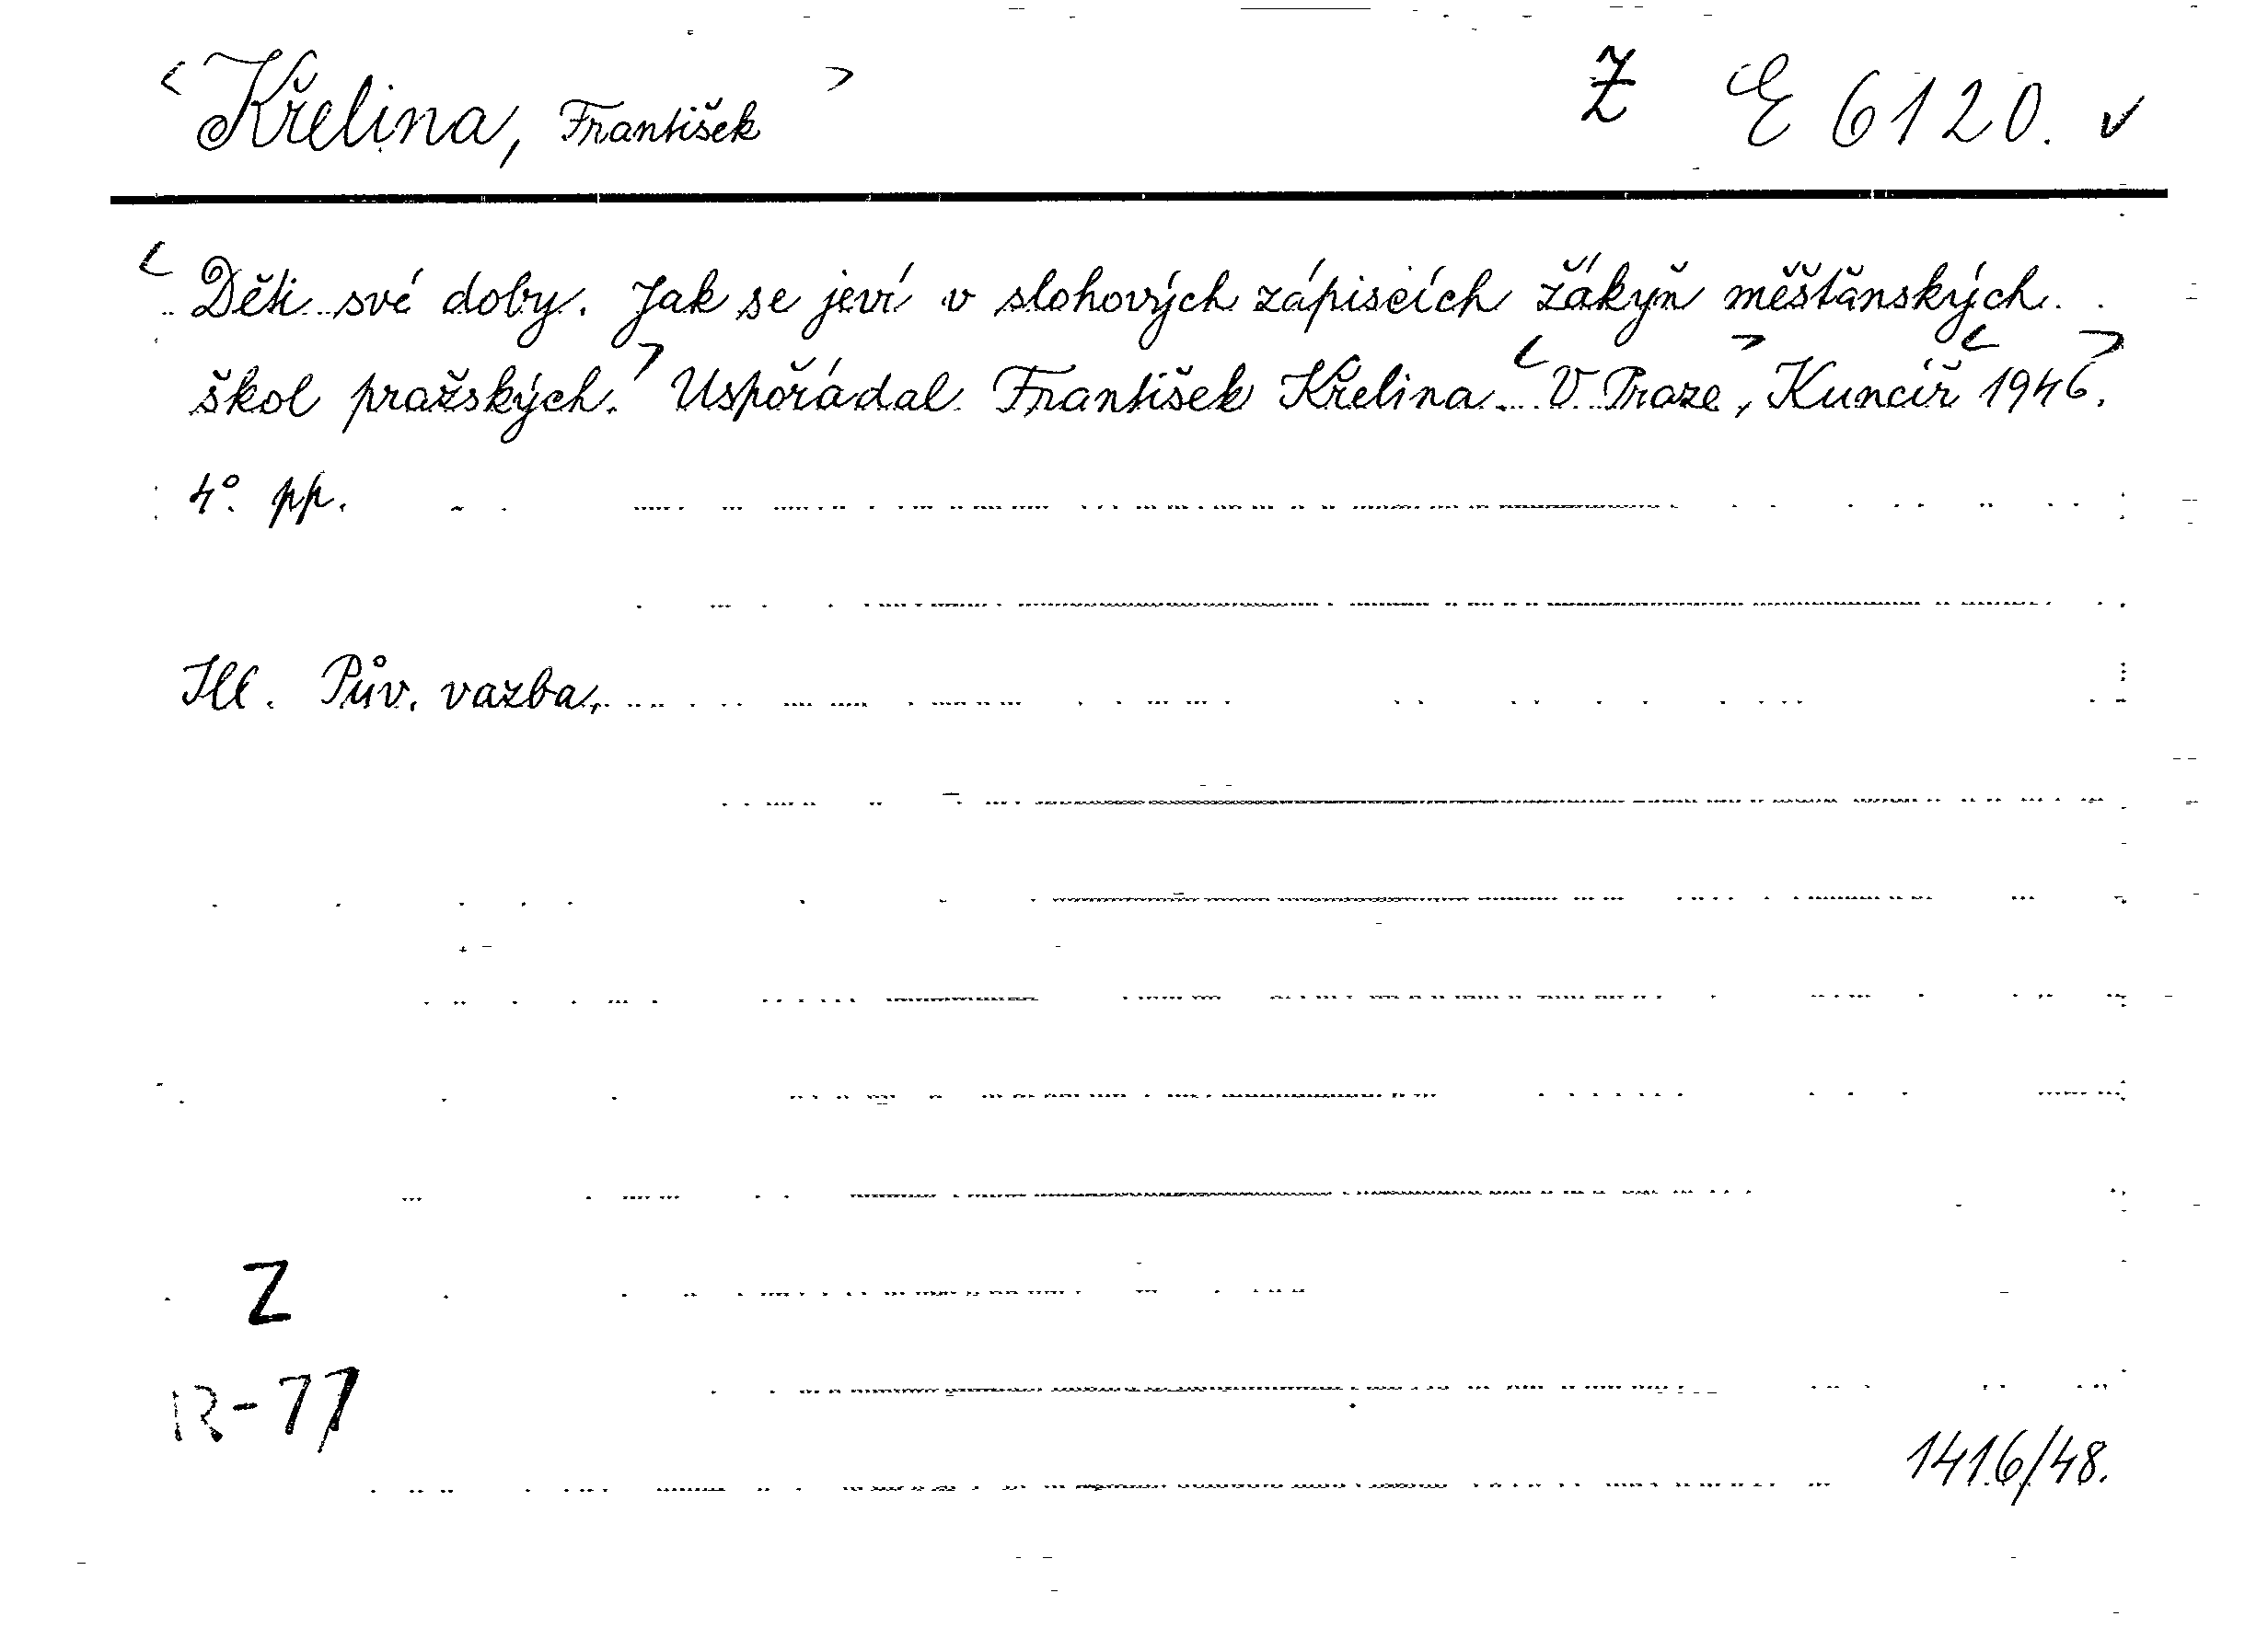 <Křelina, František> Ž E 6120. v
<Děti své doby. Jak se jeví v slohových zápiscích žákyň měšťanských
škol pražských.> Uspořádal František Křelina. <V Praze>, Kuncíř <1946>.
4°. pp.
Ill. Pův. vazba.
Z
R-77
1416/48.